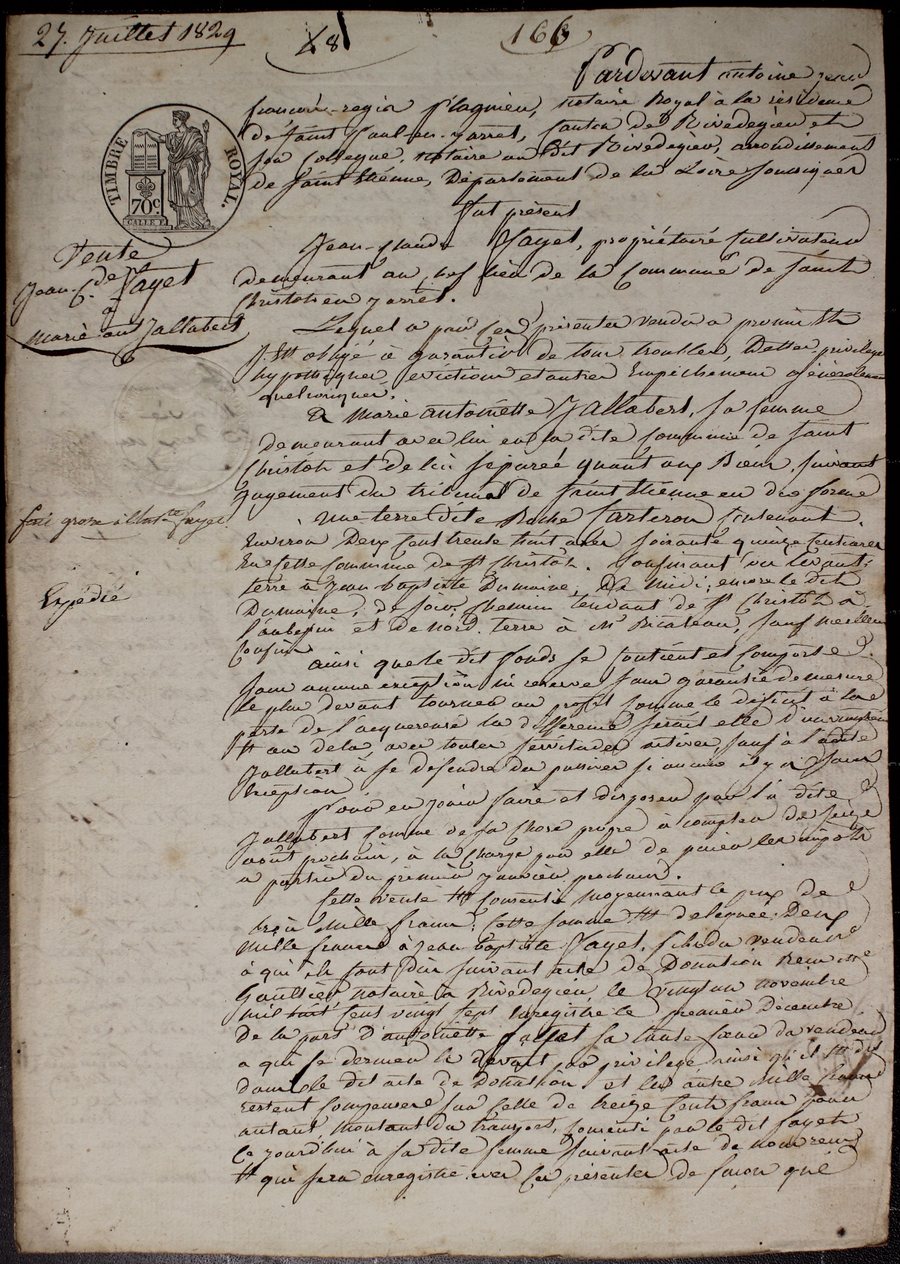 27. Juillet 1829
48
166
Pardevant antoine jean
françois-regis flagnieu, notaire Royal à la résidence
de Saint Paul-en-jarret, canton de Rivedegier et
son collegue, notaire au dit Rivedegier, arrondissement
de Saint Etienne, Département de la Loire soussignés
fut présent
TIMBRE ROYAL.
70c
CALLE F.
Vente
Jean-Cde fayet
à
Marie ante Jallabert
Jean-Claude fayet, propriétaire Cultivateur
demeurant au chef lieu de la Commune de Saint
Christôt en jarrêt.
Lequel a par ces présentes vendu a promis Et
s'Est obligé à garantir de tous troubles, Dettes, privilèges
hypothèques, evictions et autres Empêchements généralement
quelconques.
A Marie antoinette Jallabert, sa femme
demeurant avec lui en la dite Commune de Saint
Christôt et de lui séparée quant aux Biens, suivant
jugement du tribunal de Saint Etienne en due forme
une terre dite Roche Carteron contenant
Environ Deux Cent trente huit ares soixante quinze Centiares
En cette Commune de St Christôt. Confinant au levant;
terre à Jean Baptiste Dumaine; De Midi; encore le dit
Dumaine; de soir, Chemin tendant de St Christôt à
l'aubepin et de nord, terre à Mr Ricateau, sauf meilleurs
Confins
fait grosse à Marie fayet
Expedié
ainsi que le dit fonds se contient et comporte
sans aucune exception ni reserve sans garantie de mesure
le plus devant tourner au profit comme le déficit à la
perte de l'acquereuse la différence serait elle d'un vingtième
Et au delà, avec toutes servitudes actives, sauf à ladite
Jallabert à se défendre des passives si aucune il y a sans
Exception.
Pour en jouir faire et disposer par la dite
Jallabert comme de sa chose propre à compter de seize
août prochain, à la charge par elle de paier les impôts
a partir du premier janvier prochain.
Cette vente Est Consentie moyennant le prix de
trois Mille francs; Cette somme Est deleguée: Deux
Mille francs à Jean Baptiste fayet, du vendeur
à qui ils sont dus suivant acte de Donation Reçu Me
Gaultier notaire à Rivedegier le vingt un novembre
mil huit cent vingt sept Enregistré le premier Décembre
de la part d'antoinette sa tante sœur du vendeur
a qui ce dernier le devait par privilege ainsi qu'il Est dit
dans le dit acte de Donation et les autres Mille francs
restent Compensés sur celle de treize Cents francs pour
autant montant du transport, consenti par le dit fayet
ce jourd'hui à sa dite femme suivant acte de nous reçu
Et qui sera enregistré avec ces présentes de façon que